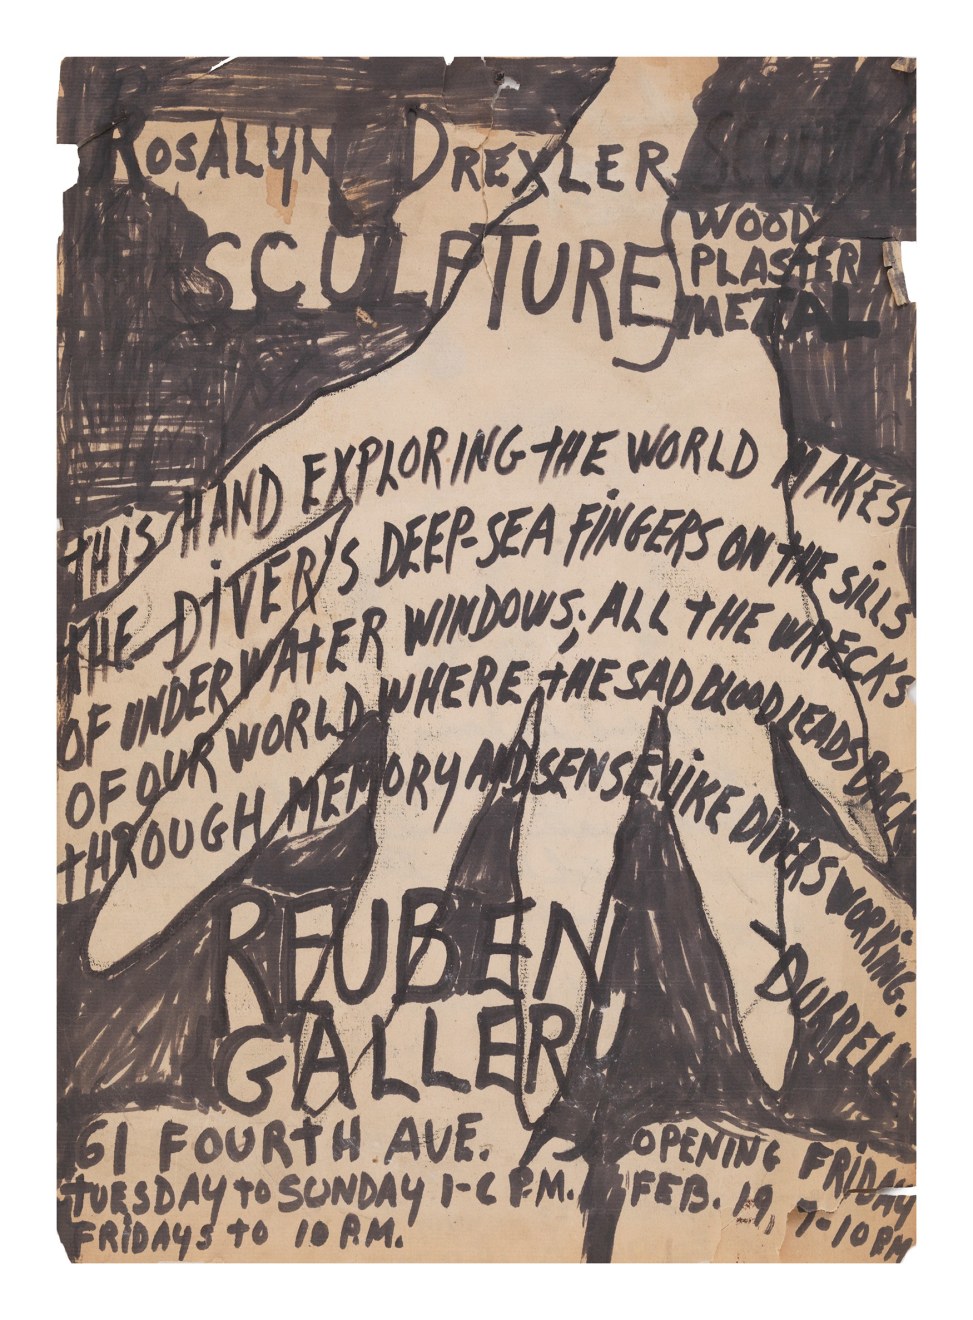 ROSALYN DREXLER
SCULPTURE
SCULPTURE
WOOD
PLASTER
METAL
THIS HAND EXPLORING THE WORLD MAKES
THE DIVER'S DEEP-SEA FINGERS ON THE SILLS
OF UNDERWATER WINDOWS; ALL THE WRECKS
OF OUR WORLD WHERE THE SAD BLOOD LEADS BACK
THROUGH MEMORY AND SENSE LIKE DIVERS WORKING.
DURRELL
REUBEN
GALLERY
61 FOURTH AVE.
TUESDAY to SUNDAY 1-6 P.M.
FRIDAYS to 10 P.M.
OPENING FRIDAY
FEB. 19, 7-10 PM